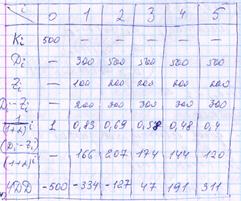 i 0 1 2 3 4 5
Кi 500 — — — — —
Дi — 300 500 500 500 500
Zi — 100 200 200 200 200
Дi-Zi — 200 300 300 300 300
1/(1+r)^i 1 0,83 0,69 0,58 0,48 0,4
(Дi-Zi)/(1+r)^i — 166 207 174 144 120
ЧДД -500 -334 -127 47 191 311